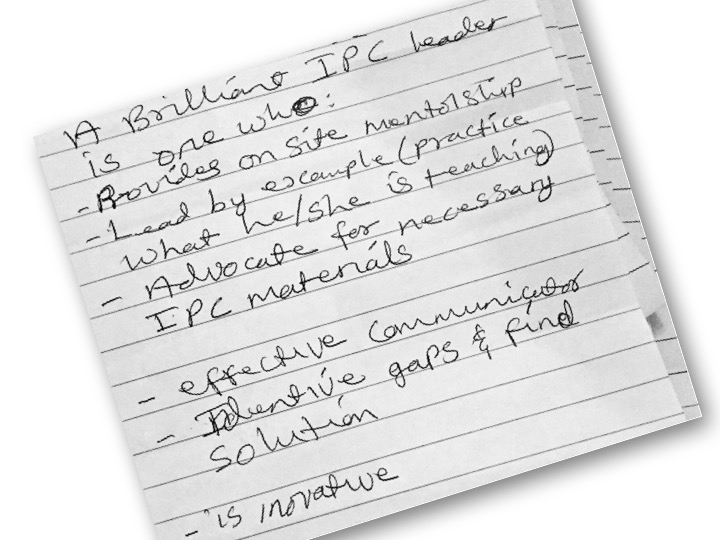 A Brilliant IPC leader
is one who:
- Provides on site mentorship
- Lead by example (practice
what he/she is teaching)
- Advocate for necessary
IPC materials
- effective communicator
- Identive gaps & find
solution
- is inovative